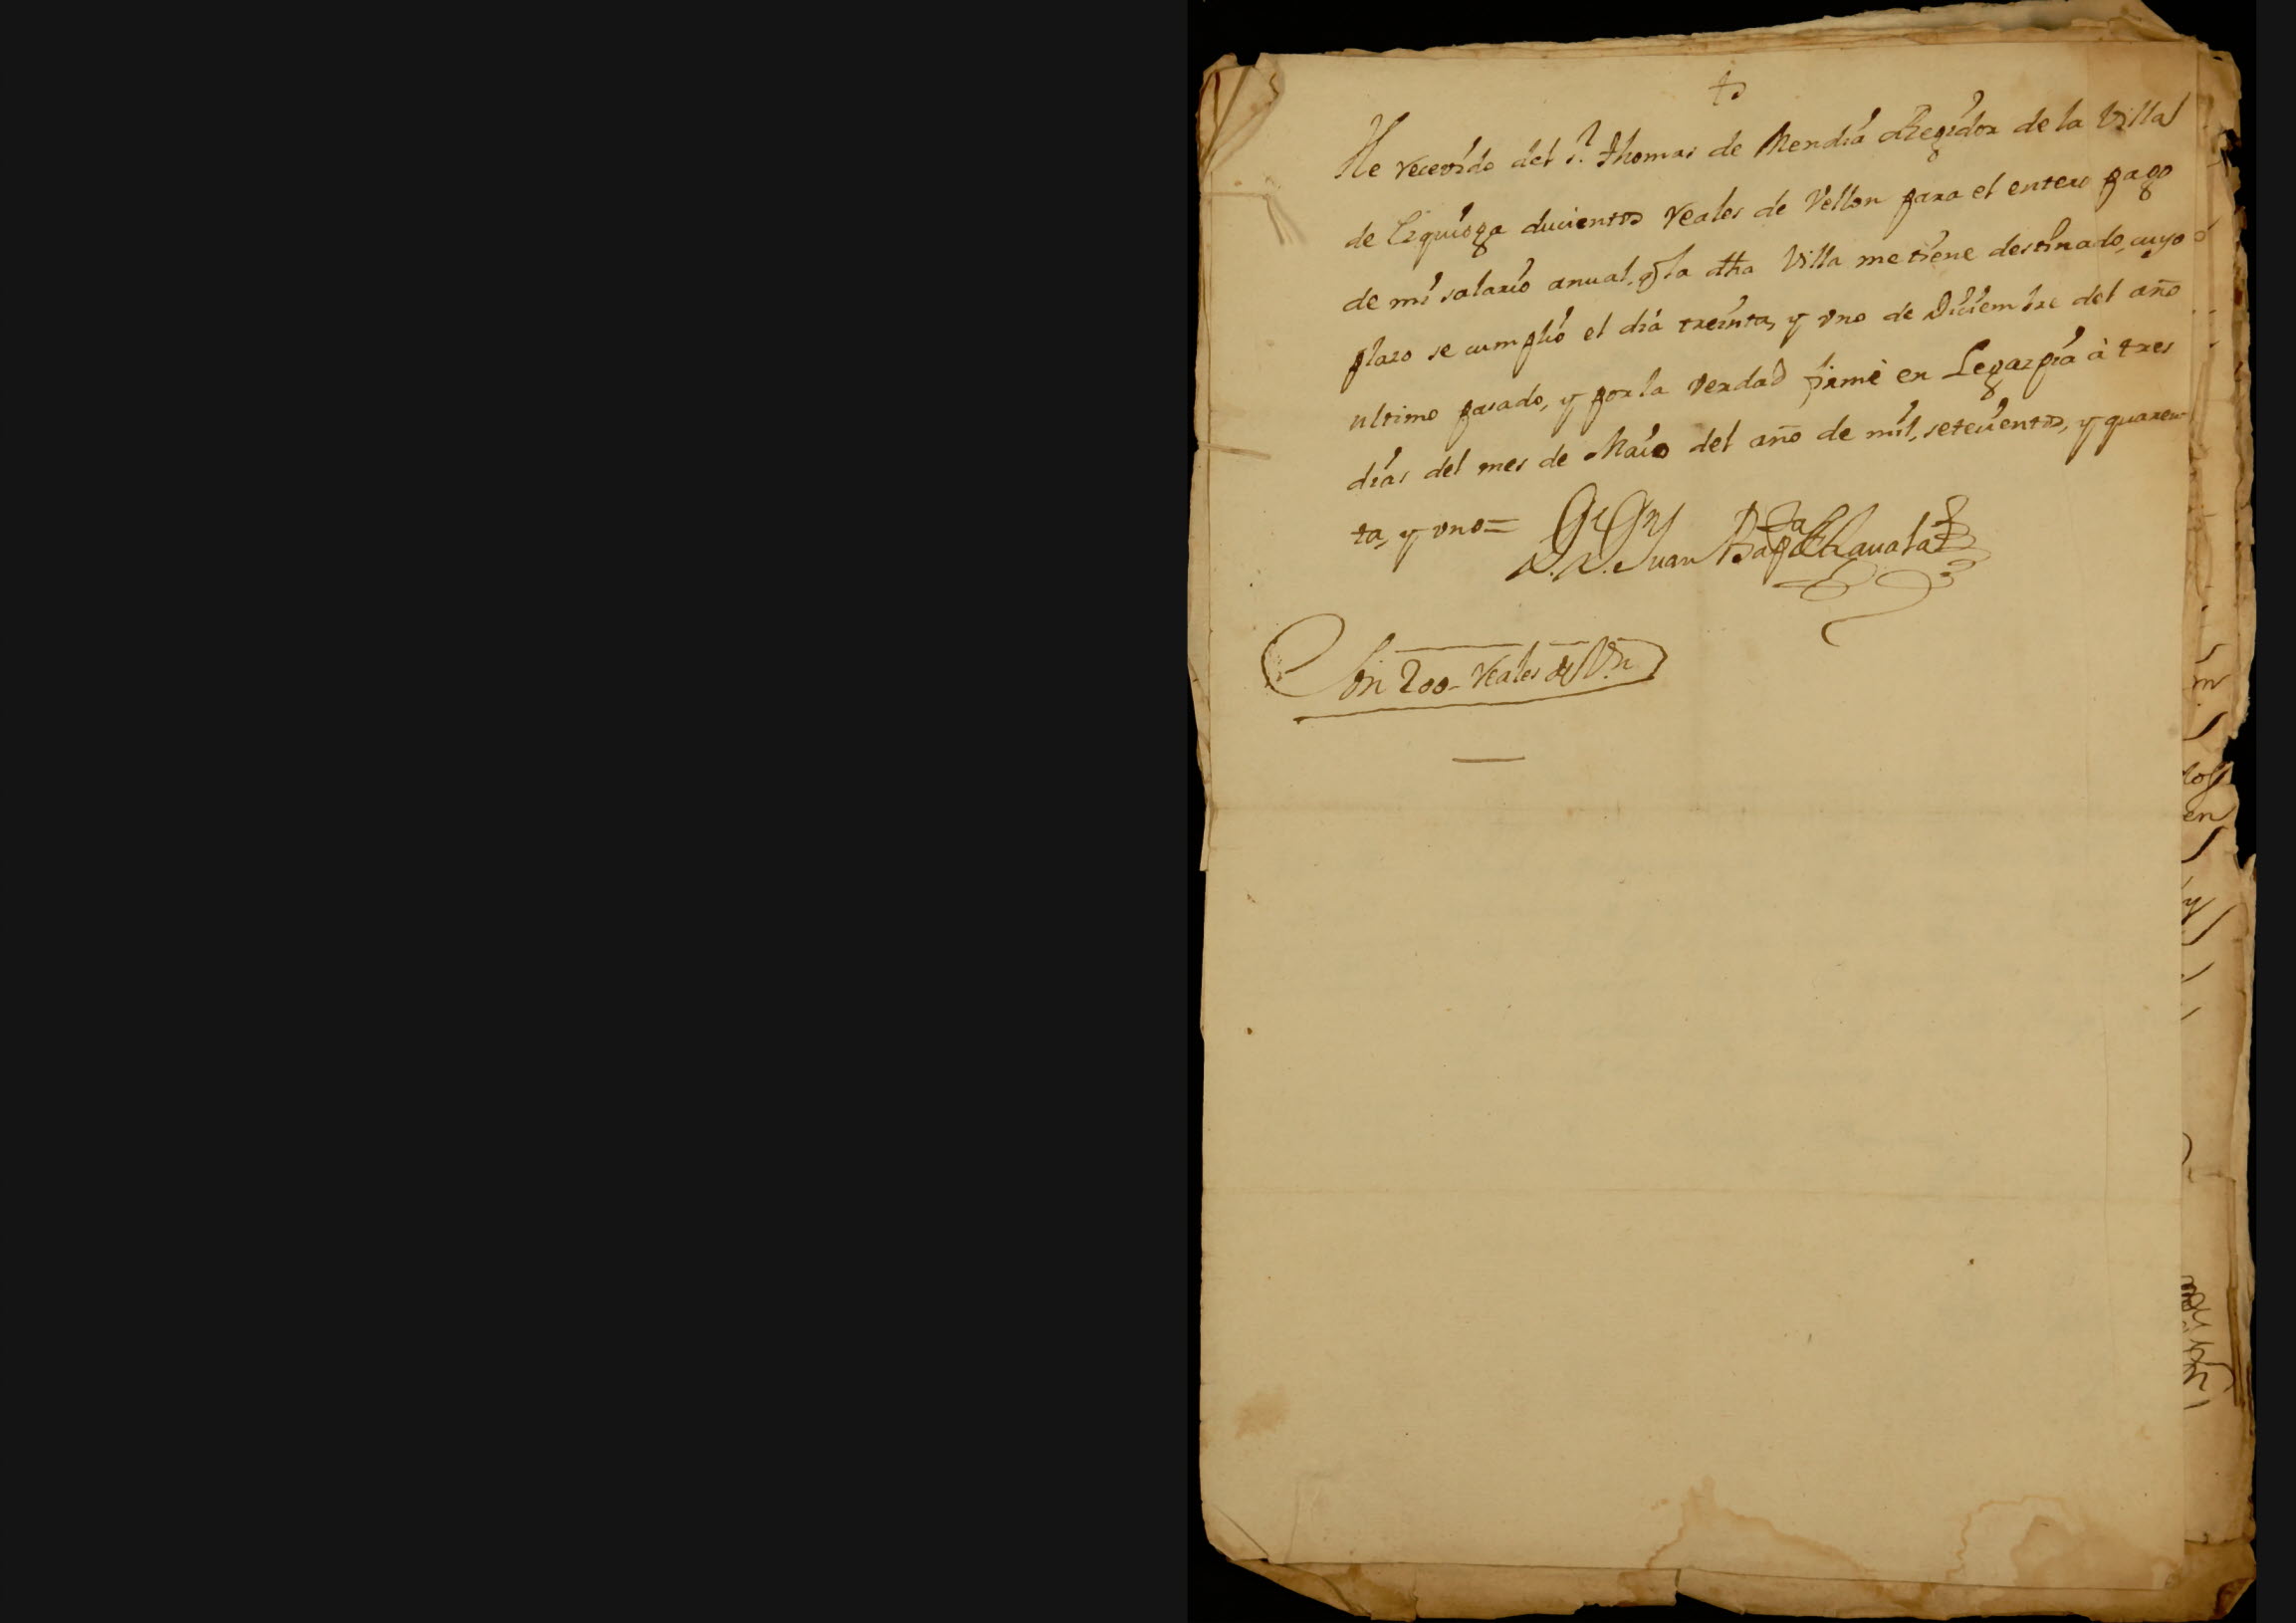 He recevido del S.r Thomas de Mendia Regidor de la Villa
de Ezquioga ducientos reales de Vellon para el entero pago
de mi salario anual, q̃ la dha Villa me tiene destinado, cuyo
plazo se cumplió el dia treinta, y uno de Diciembre del año
ultimo pasado, y por la verdad firmè en Legazpia à tres
dias del mes de Maio del año de mil, setecientos, y quaren
ta, y uno=
Juan Bap.ta Zavala
Son 200- reales de Vn